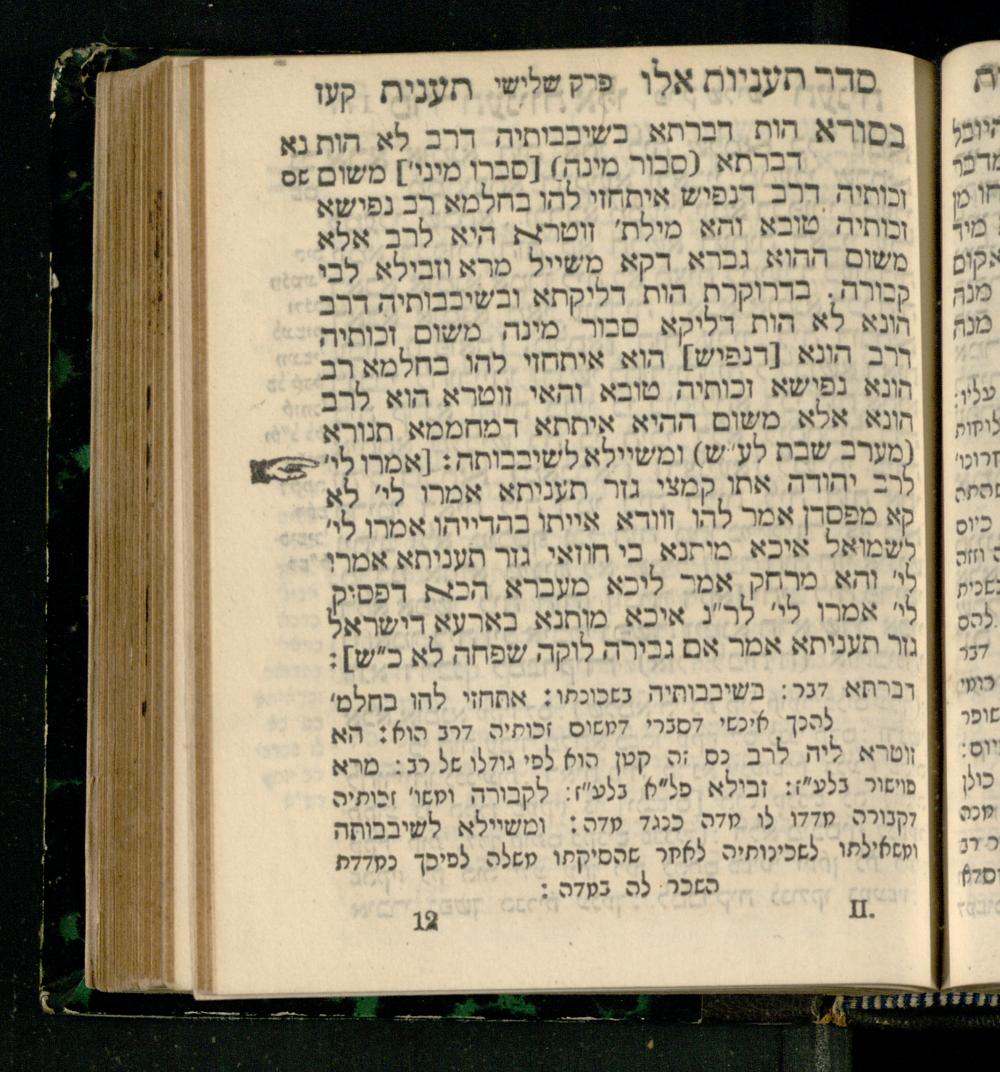 סדר תעניות אלו פרק שלישי תענית קעז
בסורא הות דברתא בשיבבותיה דרב לא הות נא
דברתא (סבור מינה) [סברו מיני'] משום שס
זכותיה דרב דנפיש איתחזי להו בחלמא רב נפישא
זכותיה טובא והא מילת' זוטרא היא לרב אלא
משום ההוא גברא דקא משייל מרא וזבילא לבי
קבורה. בדרוקרת הות דליקתא ובשיבבותיה דרב
הונא לא הות דליקא סבור מינה משום זכותיה
דרב הונא [דנפיש] הוא איתחזי להו בחלמא רב
הונא נפישא זכותיה טובא והאי זוטרא הוא לרב
הונא אלא משום ההיא איתתא דמחממא תנורא
(מערב שבת לע"ש) ומשיילא לשיבבותה: [אמרו לי'
לרב יהודה אתו קמצי גזר תעניתא אמרו לי' לא
קא מפסדן אמר להו זוודא אייתו בהדייהו אמרו לי'
לשמואל איכא מותנא בי חוזאי גזר תעניתא אמרו
לי' והא מרחק אמר ליכא מעברא הכא דפסיק
לי' אמרו לי' לר"נ איכא מותנא בארעא דישראל
גזר תעניתא אמר אם גבירה לוקה שפחה לא כ"ש]:
דברתא דבר: בשיבבותיה בשכונתו: אתחזי להו בחלמ'
להנך אינשי דסברי דמשום זכותיה דרב הוא: הא
זוטרא ליה לרב נס זה קטן הוא לפי גודלו של רב: מרא
פוישור בלע"ז: זבילא פל"א בלע"ז: לקבורה ומשו' זכותיה
דקבורה מדדו לו מדה כנגד מדה: ומשיילא לשיבבותה
ומשאילתו לשכינותיה לאחר שהסיקתו משלה לפיכך נמדדת
השכר לה במדה:
II. 12